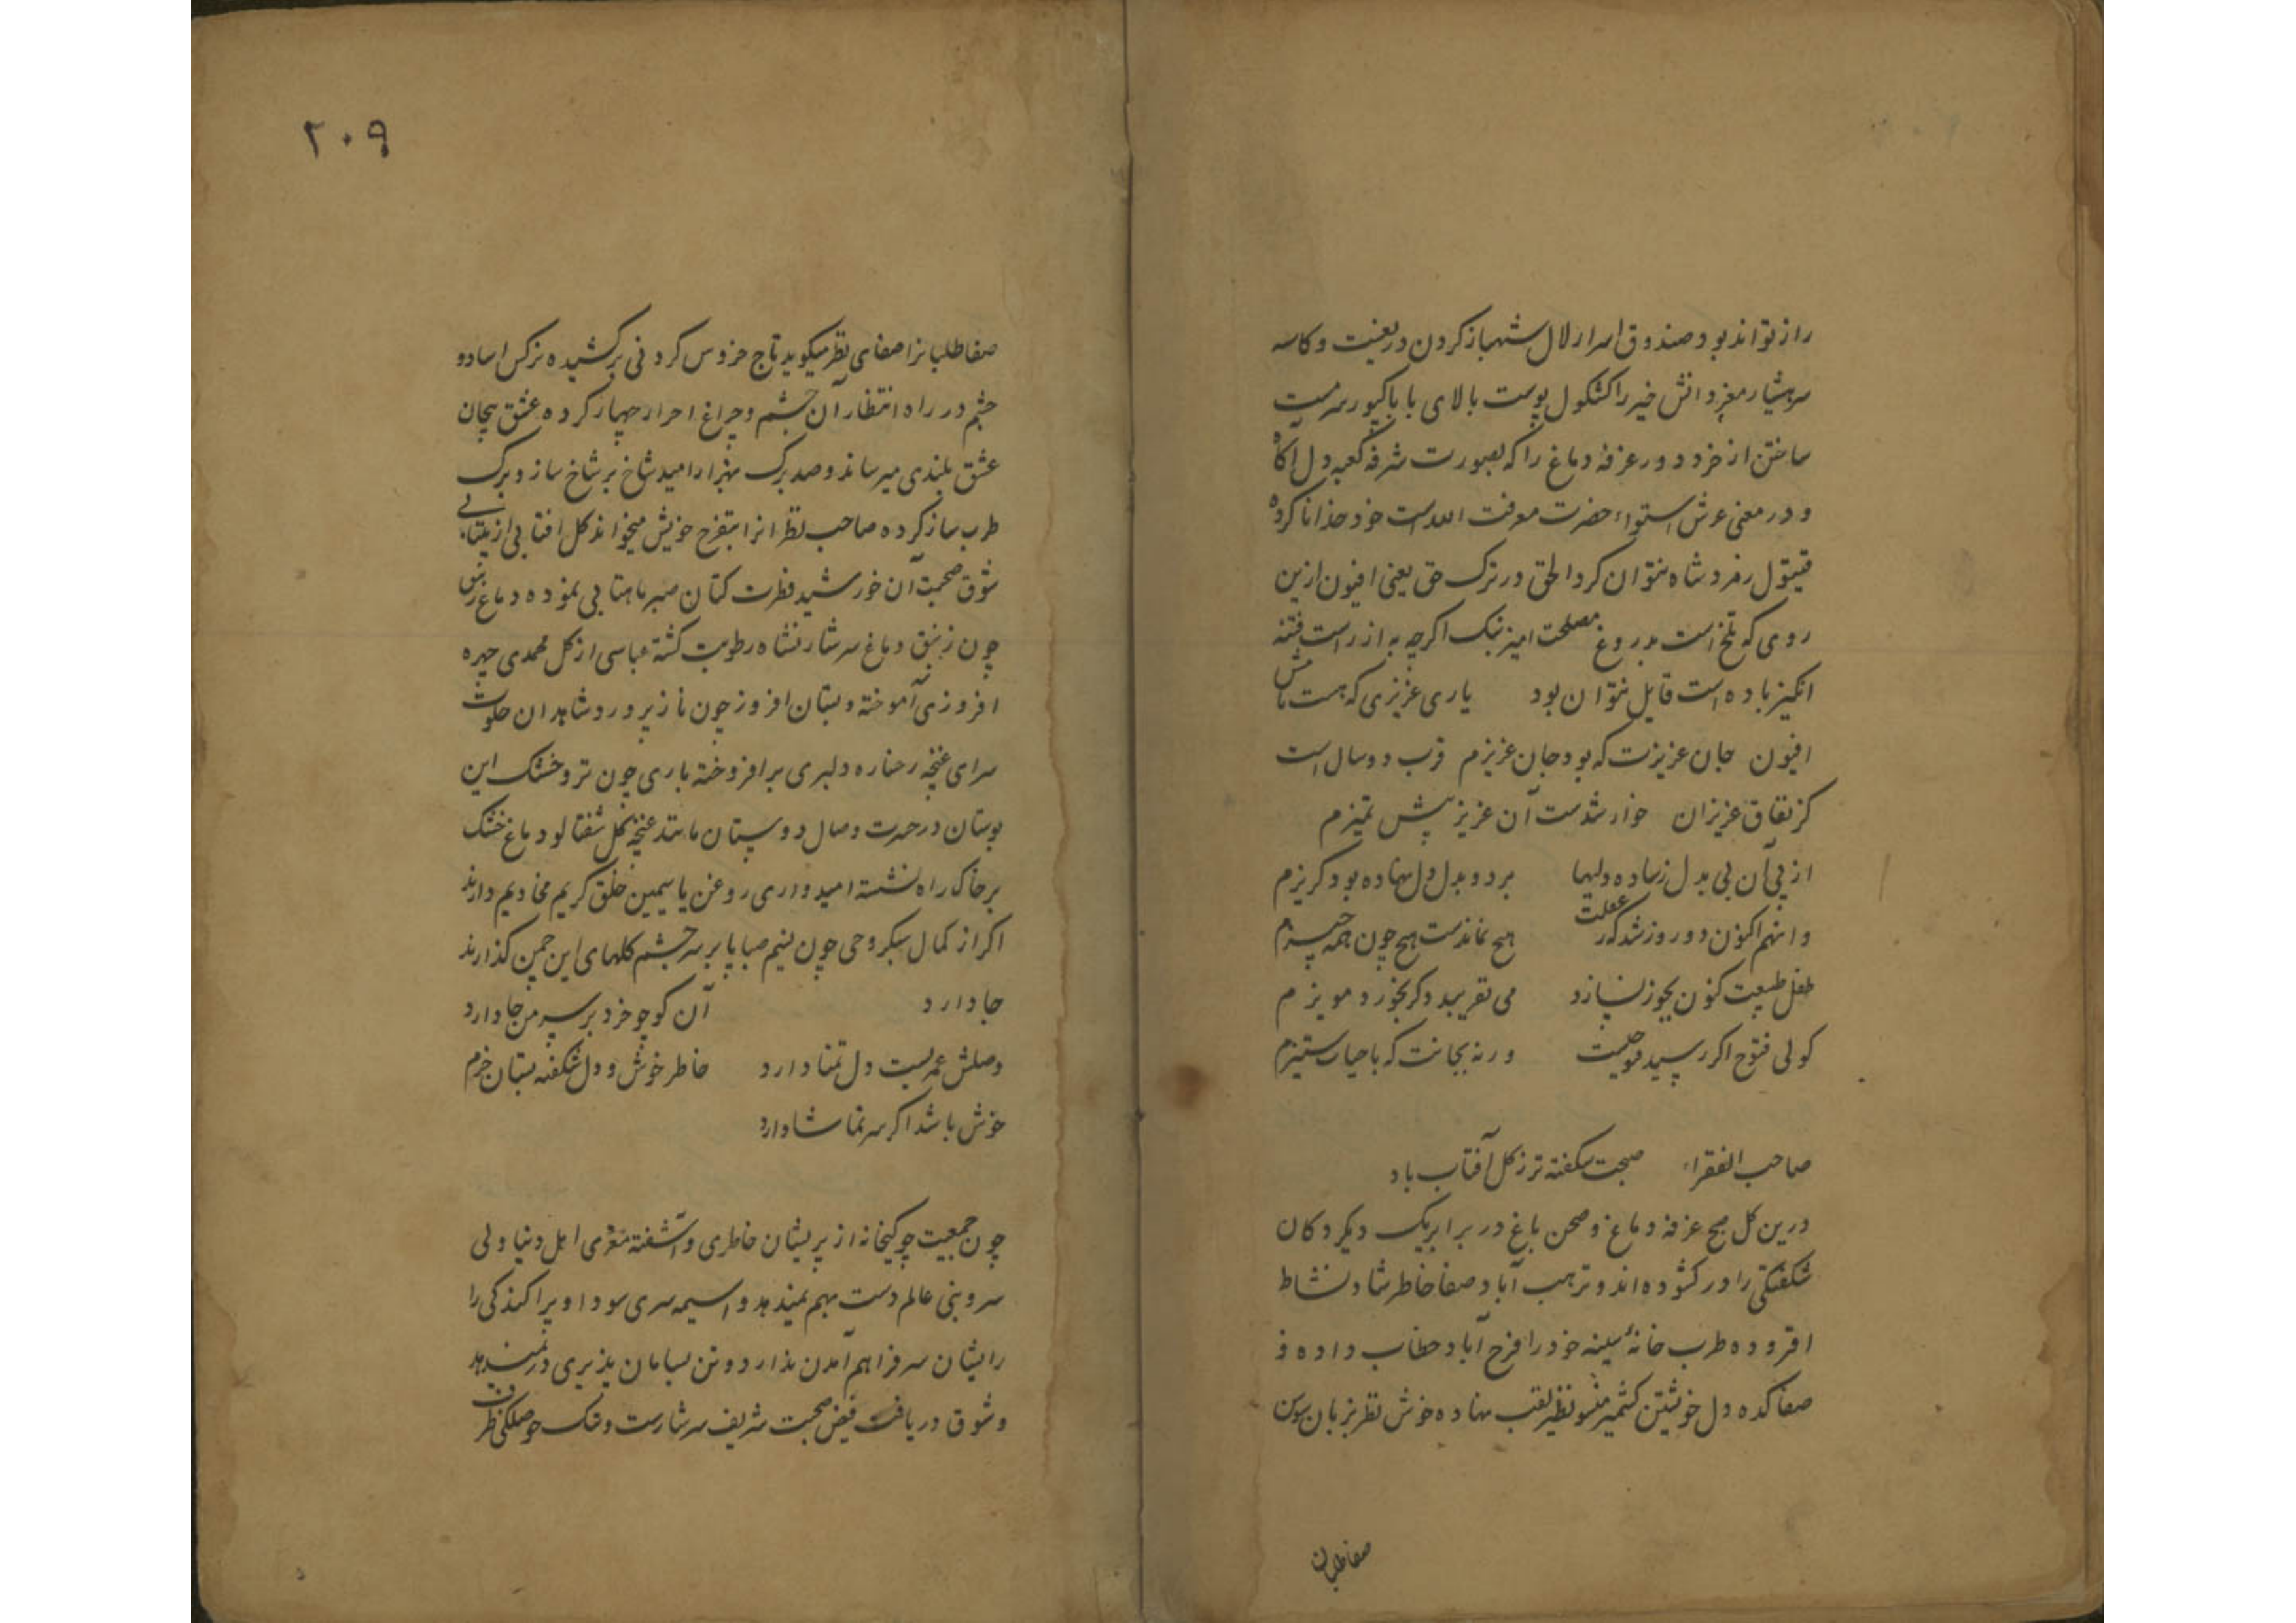 راز تواند بود صندوق اسرار لال شهباز کردن در یعنیت و کاسه
سر هشیار مغز دانش خیر را کشکول پوست بالای بابا کپور سرمست
ساختن از خرد دور غرفه دماغ را که بصورت شرفه کعبه دل آکاه
و در معنی عرش استواء حضرت معرفت الله است خود خدا نا کرده
قیتول رفر دشاه نتوان کرد الحق در ترک حق یعنی افیون ازین
روی که تلخ است بدروغ مصلحت امیز بنک اکرچه به از راست فتنه
انکیز باده است قایل نتوان بود یاری عزیزی که هست نامش
افیون جان عزیزت که بود جان عزیزم قرب دو سال است
کز نفاق عزیزان خوار شدست آن عزیز پیش تمیزم
از پی آن بی بدل ز ساده دلیها برد و بدل دل نهاده بود کریزم
وانهم اکنون دو روز شد که ز غفلت هیچ نماندست هیچ چون همه چیزم
طفل طبیعت کنون بجوز نسازد می نفریبد دکر بخورد مویزم
کولی فتوح اکر رسید فوحیست ورنه بجانت که با حیات ستیزم
صاحب الفقراء صبحت شکفته تر ز کل آفتاب باد
درین کل صبح غرفه دماغ و صحن باغ در برابر یک دیکر دکان
شکفتکی را در کشوده اند و نزهت آباد صفا خاطر شاد نشاط
افزوده طرب خانهٔ سینه خود را فرح آباد خطاب داده و
صفا کده دل خویشتن کشمیر مینو نظیر لقب نهاده خوش نظر بزبان سوسن
صفاطلبان
۲۰۹
صفاطلبانرا صفای نظر میکوید تاج خروس کردنی برکشیده نرکس اسا دو
چشم در راه انتظار آن چشم و چراغ احرار چهار کرده عشق پیچان
عشق بلندی میرساند و صد برک بهزارا امید شاخ بر شاخ ساز و برک
طرب ساز کرده صاحب نظرانرا بتفرج خویش میخواند کل افتابی از بیتابی
شوق صحبت آن خورشید فطرت کتان صبر ماهتابی نموده دماغ زنبق
چون زنبق دماغ سرشار نشاه رطوبت کشته عباسی از کل محمدی چهره
افروزی آموخته و بستان افروز چون ناز پرورد شاهدان خلوت
سرای غنچه رخساره دلبری برافروخته باری چون تر و خشک این
بوستان در حسرت وصال دوستان مانند غنچه کل شفتالو دماغ خشک
بر خاک راه نشسته امیدواری روغن یاسیمین خلق کریم مخادیم دارند
اکر از کمال سبکروحی چون نسیم صبا پا بر سر چشم کلهای این چمن کذارند
جا دارد آن کو چو خرد بر سر من جا دارد
وصلش عمریست دل تمنا دارد خاطر خوش و دل شکفته بستان خرم
خوش باشد اکر سر تماشا دارد
چون جمعیت چوکیخانه از پریشان خاطری و آشفته مغزی اهل دنیا ولی
سروبنی عالم دست بهم نمیدهد و اسیمه سری سودا و پراکندکی را
رایشان سر فراهم آمدن ندارد و تن بسامان پذیری در نمیدهد
و شوق دریافت فیض صحبت شریف سرشارست و تنک حوصلکی ظرف